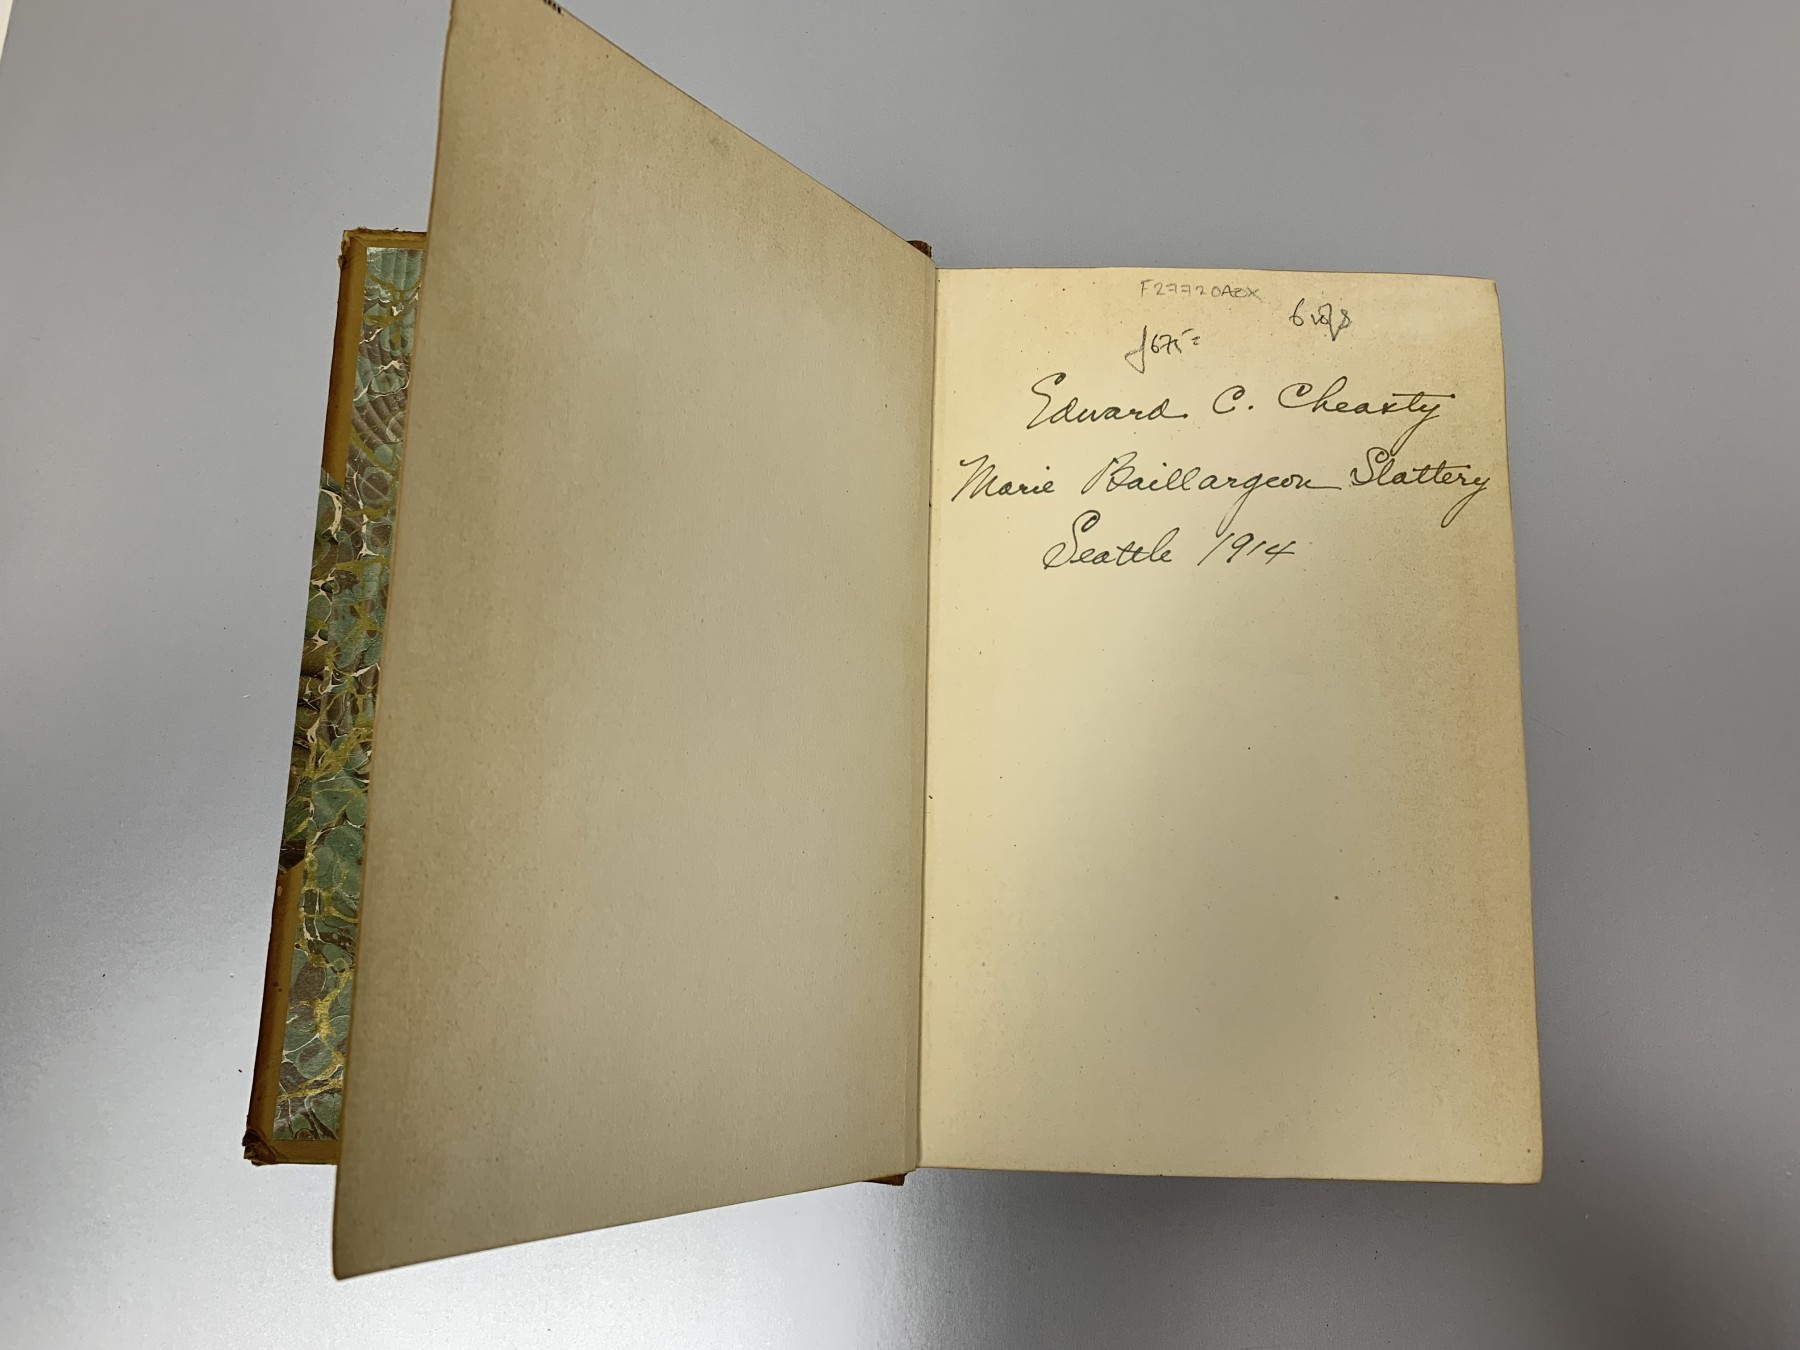 F27720A8X
6 vols
f675=
Edward C. Cheasty
Marie Baillargeon Slattery
Seattle 1914